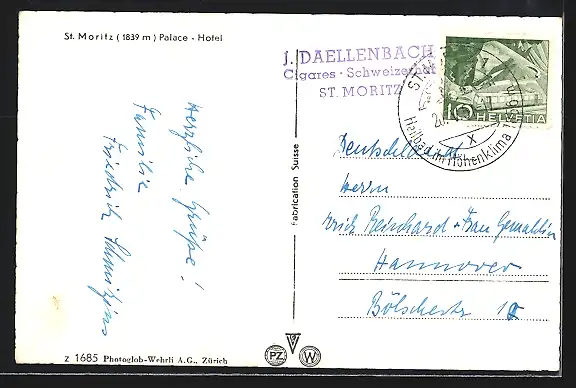 St. Moritz (1839 m) Palace - Hotel
J. DAELLENBACH
Cigares - Schweizerhof
ST. MORITZ
10 HELVETIA
ST. M
X
Heilbad im Höhenklima 1856 m
Herzliche Grüße!
Familie
Friedrich
Fabrication Suisse
Deutschland
Herrn
Erich Reinhard + Frau Gemahlin
Hannover
Bölschestr.
PZ W
Z 1685 Photoglob-Wehrli A.G., Zürich